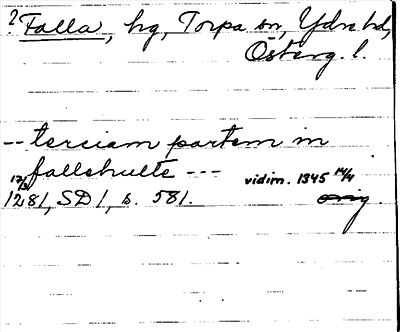 ? Falla, hg, Torpa sn, Ydre hd,
Österg. l.
-- terciam partem in
fallehulte ---
12/3 1281, SD 1, s. 581. vidim. 1345 14/4
orig.